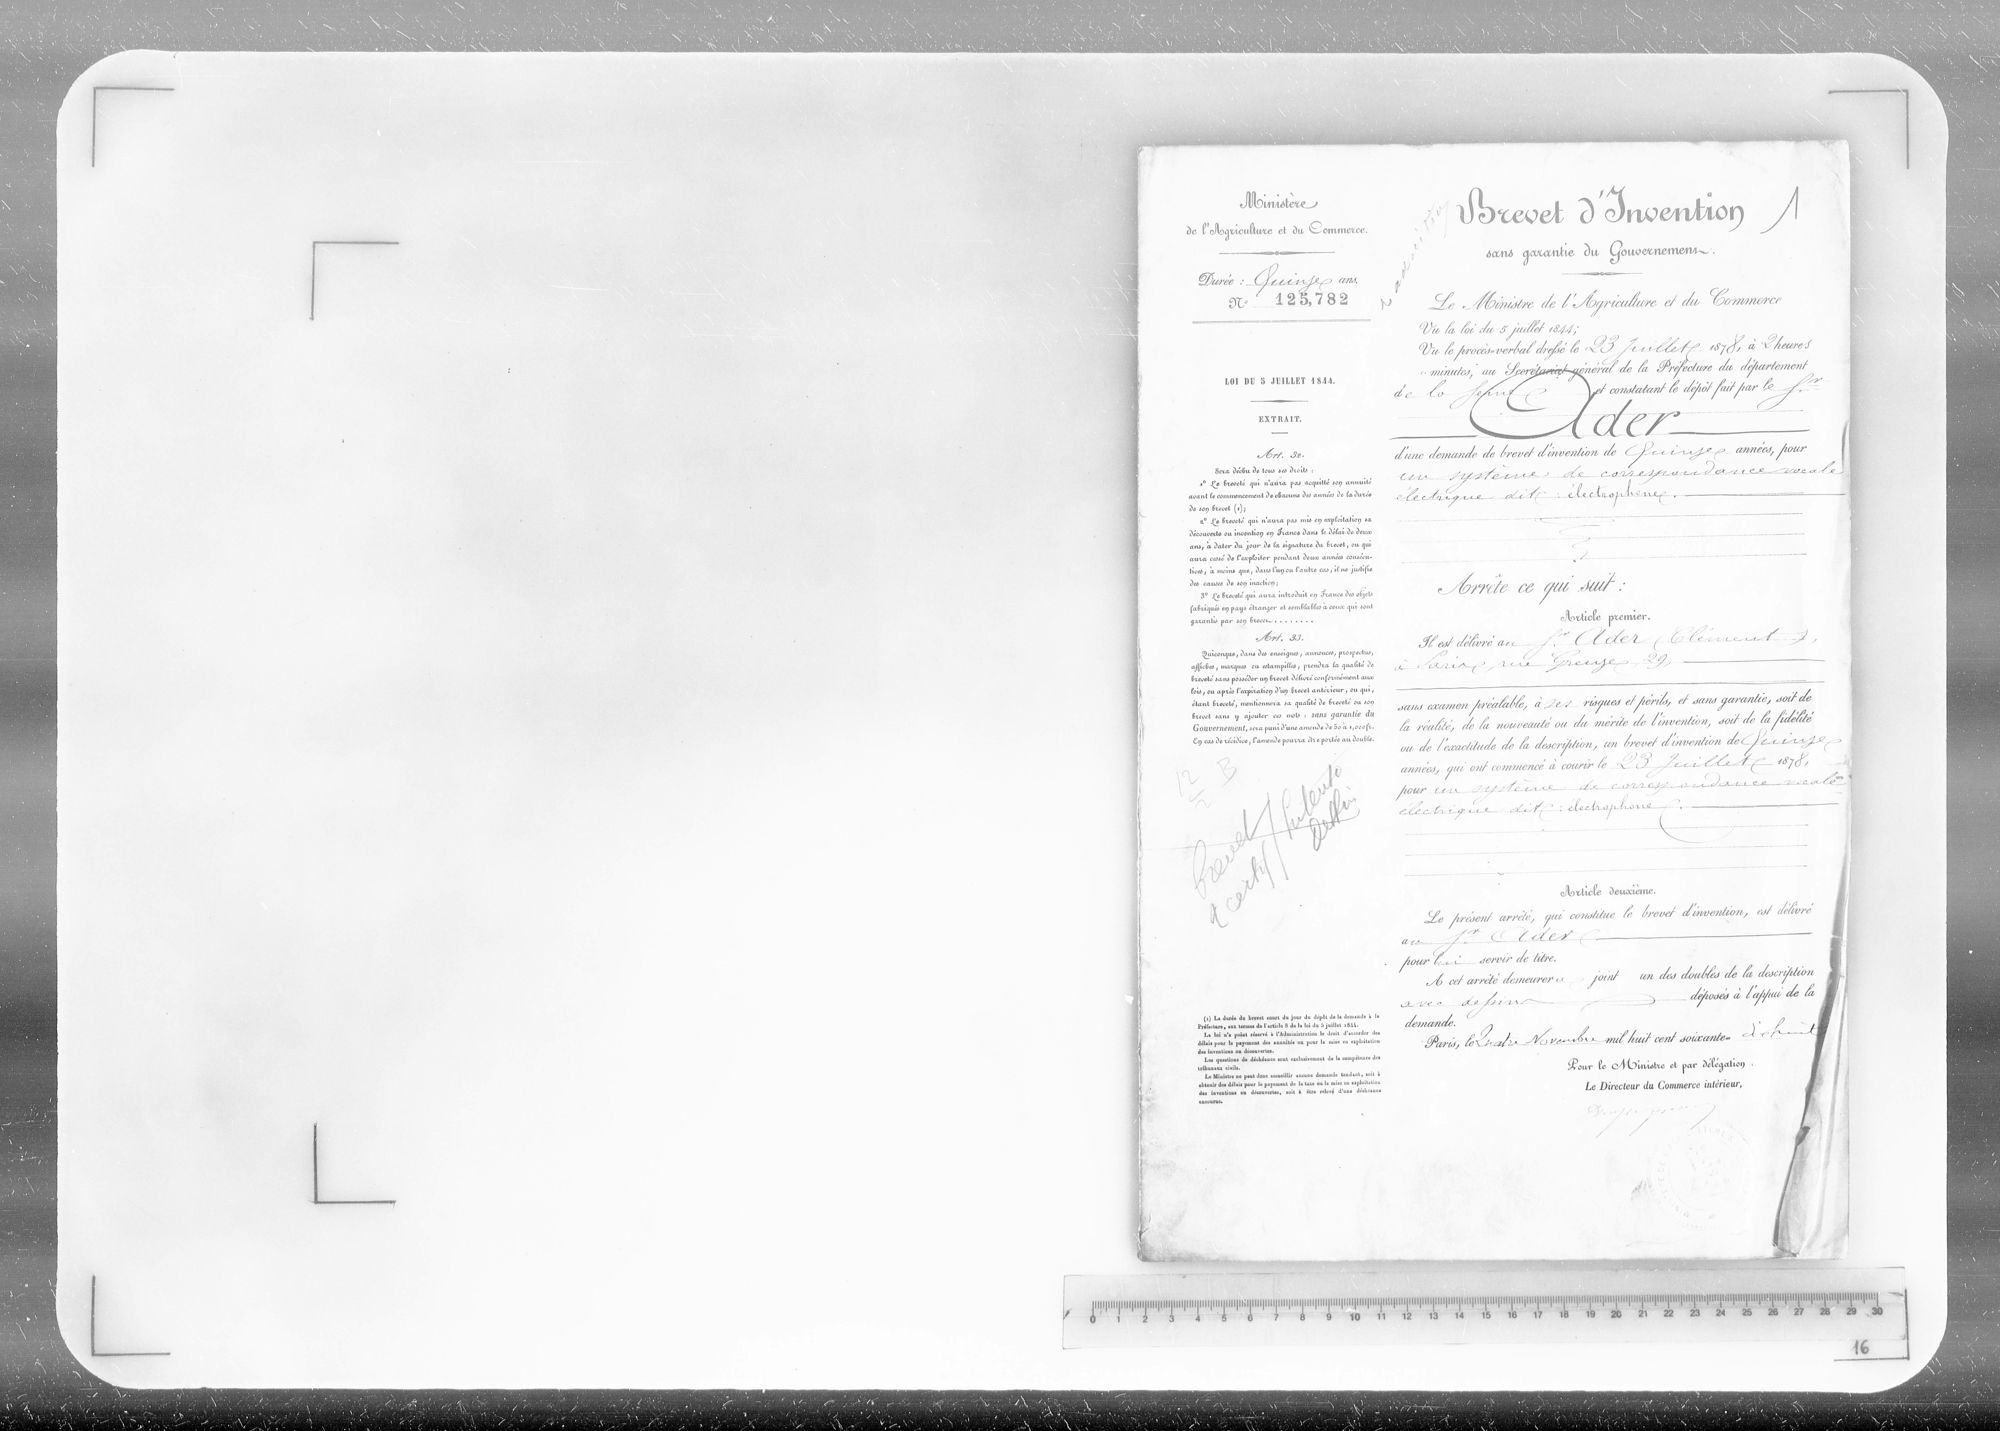 Ministère
de l'Agriculture et du Commerce.
Durée : Quinze ans.
N° 125,782
LOI DU 5 JUILLET 1844.
EXTRAIT.
Art. 32.
Sera déchu de tous ses droits :
1° Le breveté qui n'aura pas acquitté son annuité
avant le commencement de chacune des années de la durée
de son brevet (1);
2° Le breveté qui n'aura pas mis en exploitation sa
découverte ou invention en France dans le délai de deux
ans, à dater du jour de la signature du brevet, ou qui
aura cessé de l'exploiter pendant deux années consécu-
tives, à moins que, dans l'un ou l'autre cas, il ne justifie
des causes de son inaction;
3° Le breveté qui aura introduit en France des objets
fabriqués en pays étranger et semblables à ceux qui sont
garantis par son brevet........
Art. 33.
Quiconque, dans des enseignes, annonces, prospectus,
affiches, marques ou estampilles, prendra la qualité de
breveté sans posséder un brevet délivré conformément aux
lois, ou après l'expiration d'un brevet antérieur, ou qui,
étant breveté, mentionnera sa qualité de breveté ou son
brevet sans y ajouter ces mots : sans garantie du
Gouvernement, sera puni d'une amende de 50 à 1,000 fr.
En cas de récidive, l'amende pourra être portée au double.
12 B
2
Brevet
et certif
(1) La durée du brevet court du jour du dépôt de la demande à la
Préfecture, aux termes de l'article 8 de la loi du 5 juillet 1844.
La loi n'a point réservé à l'Administration le droit d'accorder des
délais pour le payement des annuités ou pour la mise en exploitation
des inventions ou découvertes.
Les questions de déchéance sont exclusivement de la compétence des
tribunaux civils.
Le Ministre ne peut donc accueillir aucune demande tendant, soit à
obtenir des délais pour le payement de la taxe ou la mise en exploitation
des inventions ou découvertes, soit à être relevé d'une déchéance
encourue.
2 additions
Brevet d'Invention 1
sans garantie du Gouvernement.
Le Ministre de l'Agriculture et du Commerce
Vu la loi du 5 juillet 1844;
Vu le procès-verbal dressé le 23 Juillet 1878, à 2 heures
" minutes, au Secrétariat général de la Préfecture du département
de la Seine et constatant le dépôt fait par le Sr
Ader
d'une demande de brevet d'invention de Quinze années, pour
un système de correspondance vocale
électrique dit : électrophone.
Arrête ce qui suit :
Article premier.
Il est délivré au Sr Ader (Clément),
à Paris, rue Greuze, 29,
sans examen préalable, à ses risques et périls, et sans garantie, soit de
la réalité, de la nouveauté ou du mérite de l'invention, soit de la fidélité
ou de l'exactitude de la description, un brevet d'invention de Quinze
années, qui ont commencé à courir le 23 Juillet 1878,
pour un système de correspondance vocale
électrique dit : électrophone.
Article deuxième.
Le présent arrêté, qui constitue le brevet d'invention, est délivré
au Sr Ader
pour lui servir de titre.
A cet arrêté demeurera joint un des doubles de la description
avec dessin déposés à l'appui de la
demande.
Paris, le Quatre Novembre mil huit cent soixante-dix huit
Pour le Ministre et par délégation :
Le Directeur du Commerce intérieur,
0 1 2 3 4 5 6 7 8 9 10 11 12 13 14 15 16 17 18 19 20 21 22 23 24 25 26 27 28 29 30
16